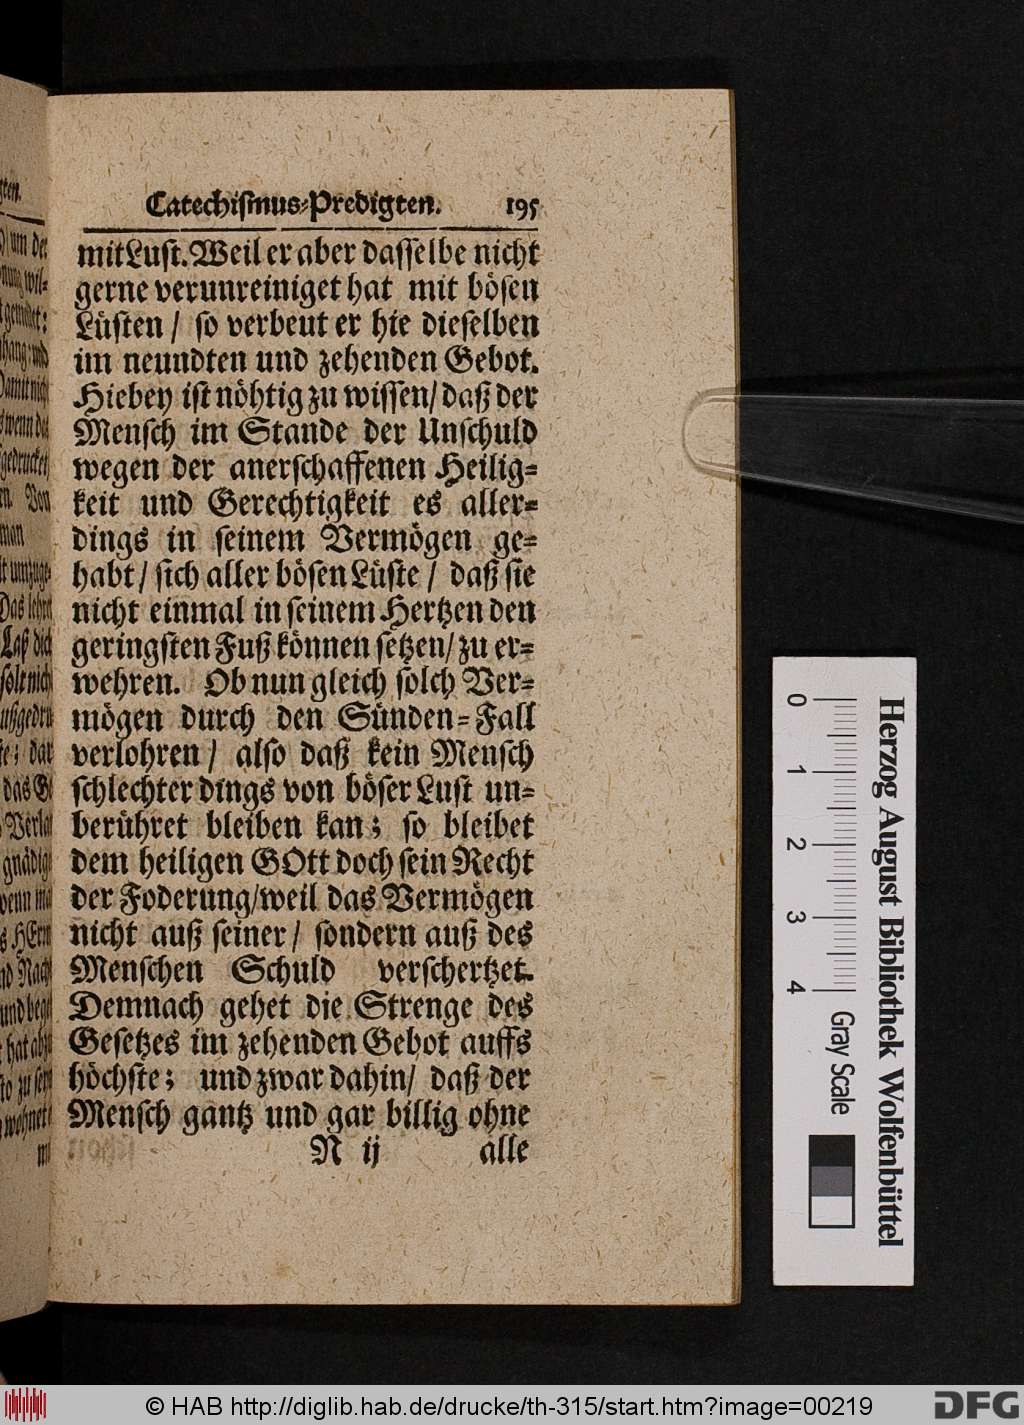 Catechismus-Predigten. 195
mit Lust. Weil er aber dasselbe nicht
gerne verunreiniget hat mit bösen
Lüsten / so verbeut er hie dieselben
im neundten und zehenden Gebot.
Hiebey ist nöhtig zu wissen / daß der
Mensch im Stande der Unschuld
wegen der anerschaffenen Heilig-
keit und Gerechtigkeit es aller-
dings in seinem Vermögen ge-
habt / sich aller bösen Lüste / daß sie
nicht einmal in seinem Hertzen den
geringsten Fuß können setzen / zu er-
wehren. Ob nun gleich solch Ver-
mögen durch den Sünden-Fall
verlohren / also daß kein Mensch
schlechter dings von böser Lust un-
berühret bleiben kan; so bleibet
dem heiligen GOtt doch sein Recht
der Foderung / weil das Vermögen
nicht auß seiner / sondern auß des
Menschen Schuld verschertzet.
Demnach gehet die Strenge des
Gesetzes im zehenden Gebot auffs
höchste; und zwar dahin / daß der
Mensch gantz und gar billig ohne
N ij alle
0 1 2 3 4
Gray Scale
Herzog August Bibliothek Wolfenbüttel
© HAB http://diglib.hab.de/drucke/th-315/start.htm?image=00219
DFG